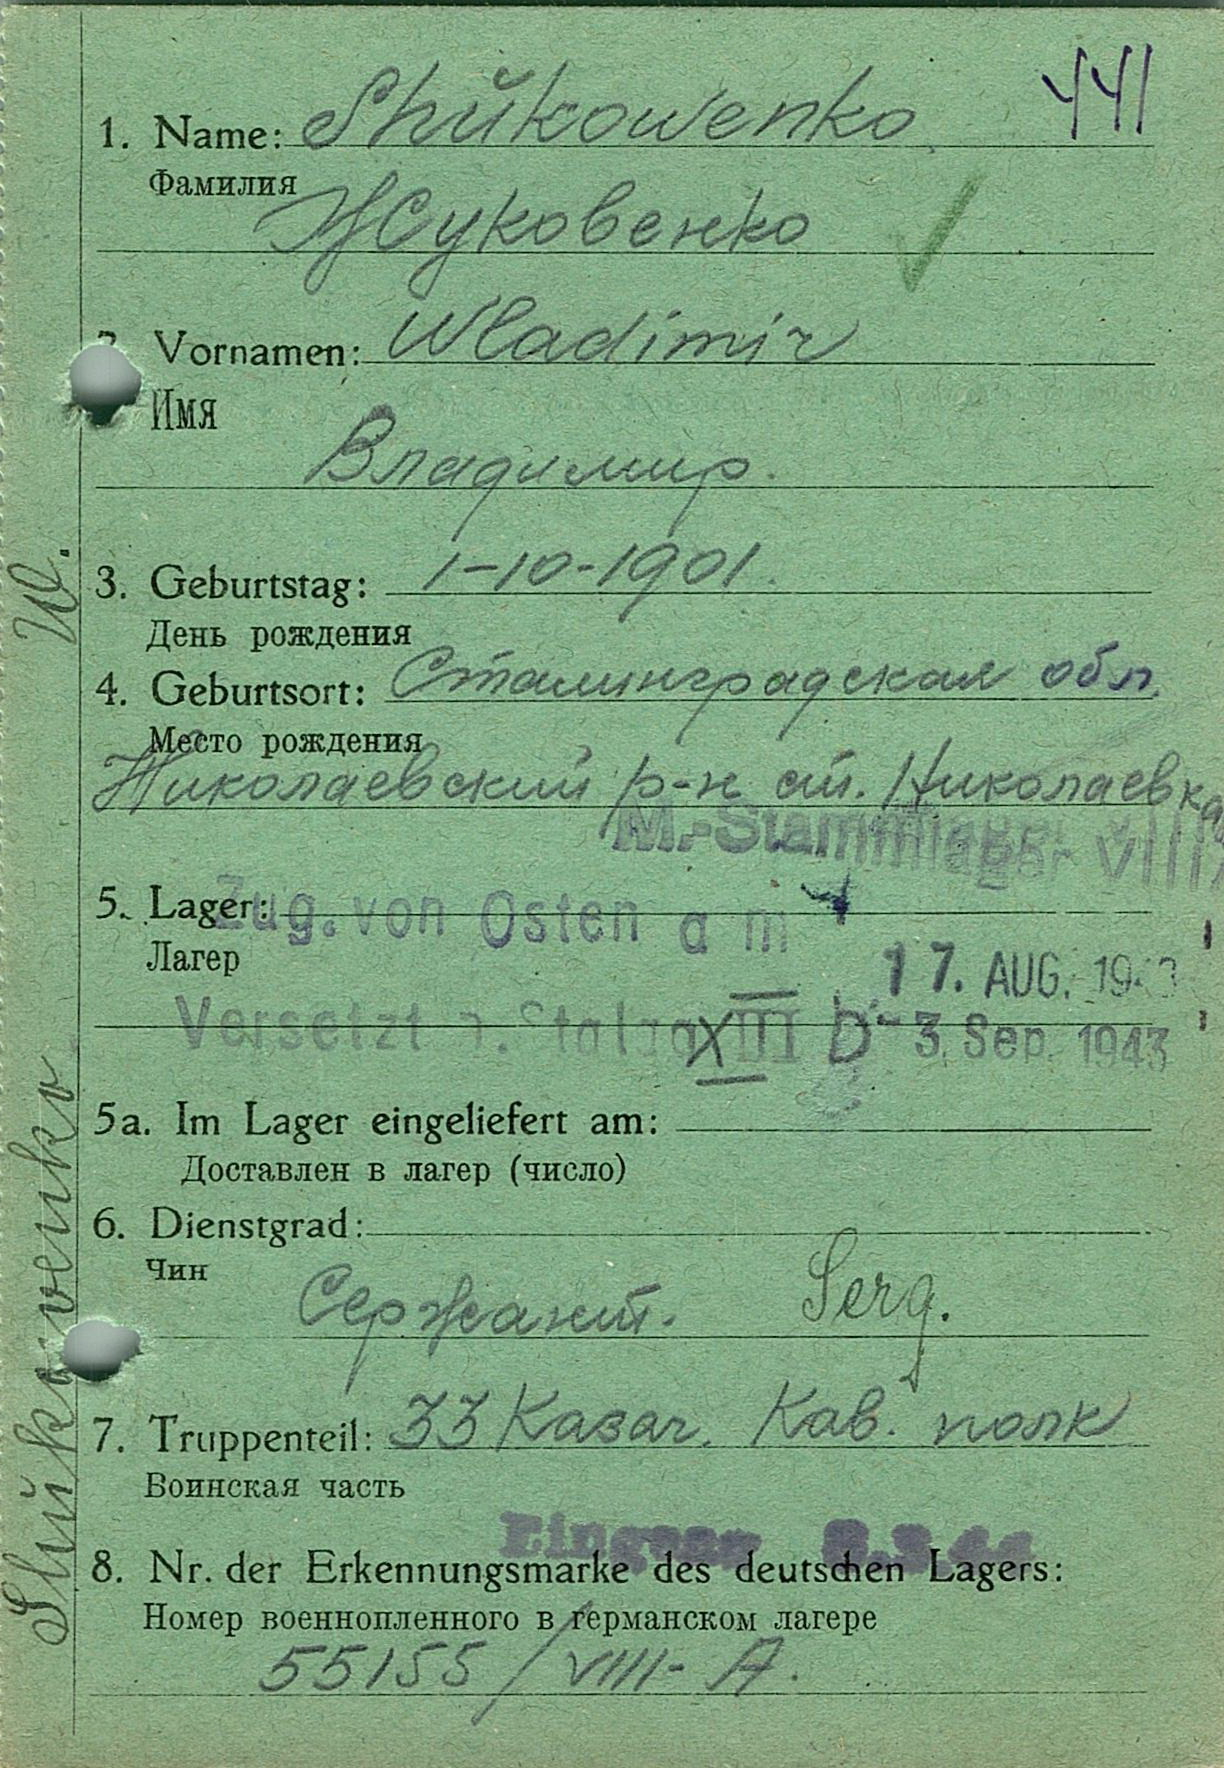 441
1. Name: Shŭkowenko
Фамилия
Жуковенко
Vornamen: Wladimir
Имя
Владимир.
3. Geburtstag: 1-10-1901.
День рождения
4. Geburtsort: Сталинградская обл.
Место рождения
Николаевский р-н ст. Николаевка
M.-Stammlager VIII
5. Lager:
Zug. von Osten am
Лагер
17. AUG. 1943
Versetzt n. Stalag XIII D - 3. Sep. 1943
5a. Im Lager eingeliefert am:
Доставлен в лагер (число)
6. Dienstgrad:
Чин
Сержант. Serg.
7. Truppenteil: 33 Казач. Кав. полк
Воинская часть
8. Nr. der Erkennungsmarke des deutschen Lagers:
Номер военнопленного в германском лагере
55155 / VIII-A.
Shŭkowenko W.